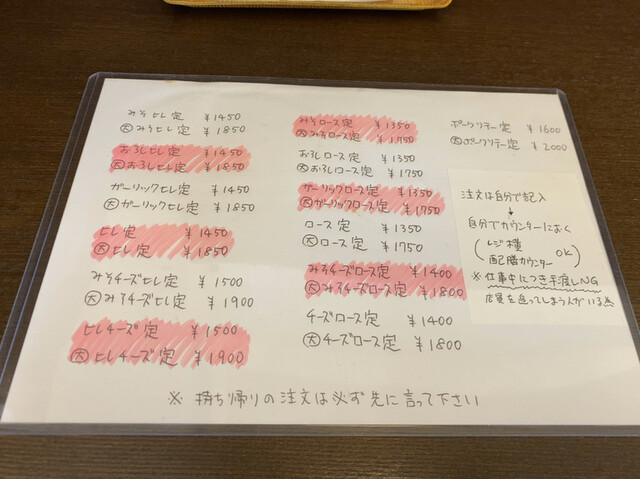 みそヒレ定 ¥1450
大みそヒレ定 ¥1850
おろしヒレ定 ¥1450
大おろしヒレ定 ¥1850
ガーリックヒレ定 ¥1450
大ガーリックヒレ定 ¥1850
ヒレ定 ¥1450
大ヒレ定 ¥1850
みそチーズヒレ定 ¥1500
大みそチーズヒレ定 ¥1900
ヒレチーズ定 ¥1500
大ヒレチーズ定 ¥1900
みそロース定 ¥1350
大みそロース定 ¥1750
おろしロース定 ¥1350
大おろしロース定 ¥1750
ガーリックロース定 ¥1350
大ガーリックロース定 ¥1750
ロース定 ¥1350
大ロース定 ¥1750
みそチーズロース定 ¥1400
大みそチーズロース定 ¥1800
チーズロース定 ¥1400
大チーズロース定 ¥1800
ポークソテー定 ¥1600
大ポークソテー定 ¥2000
注文は自分で記入
↓
自分でカウンターにおく
(レジ横
配膳カウンター OK)
※仕事中につき手渡しNG
店員を追ってしまう人がいる為
※ 持ち帰りの注文は必ず先に言って下さい